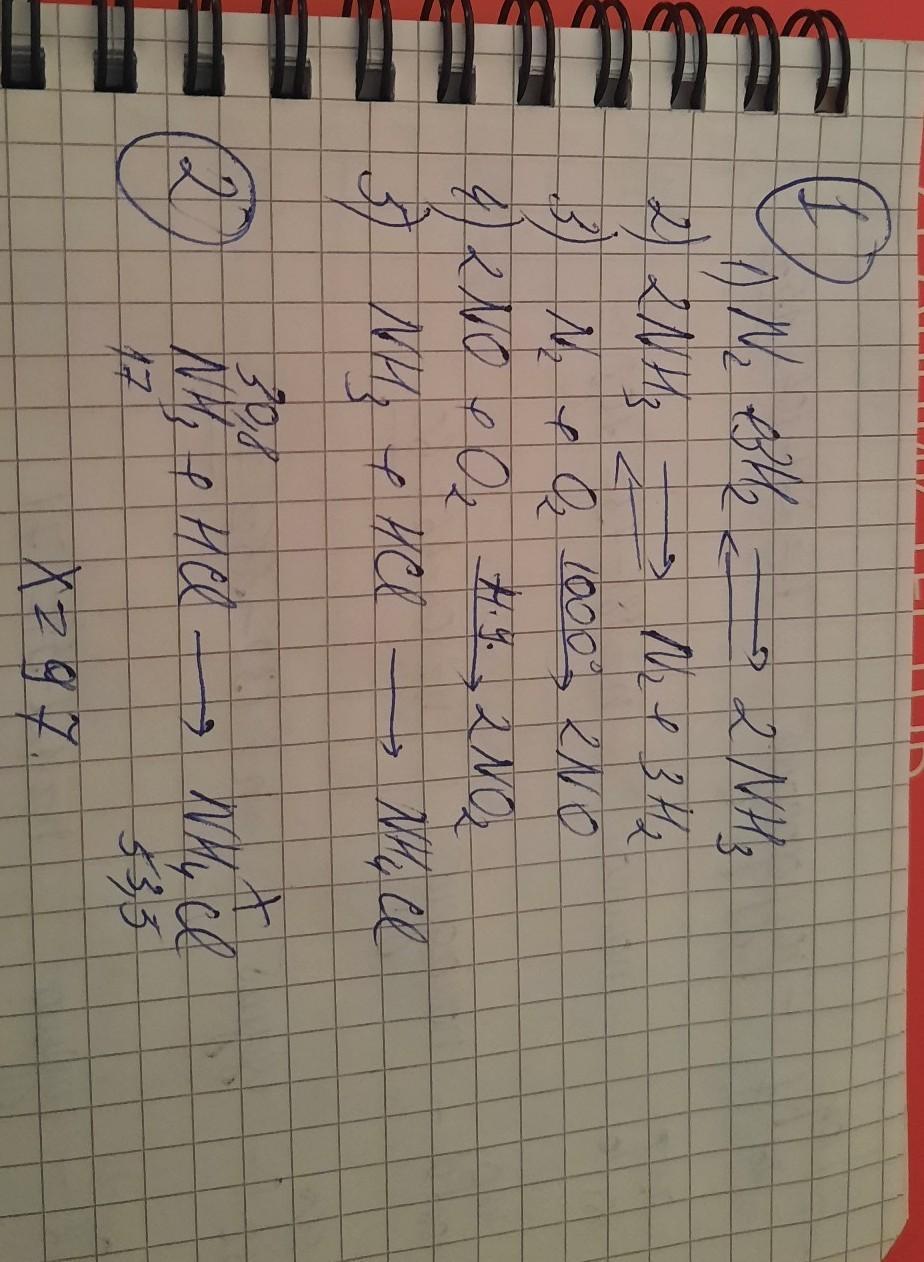 1
1) N₂ + 3H₂ ⇄ 2NH₃
2) 2NH₃ ⇄ N₂ + 3H₂
3) N₂ + O₂ 1000° → 2NO
4) 2NO + O₂ н.у. → 2NO₂
5) NH₃ + HCl → NH₄Cl
2
30,8 X
NH₃ + HCl → NH₄Cl
17 53,5
X = 97